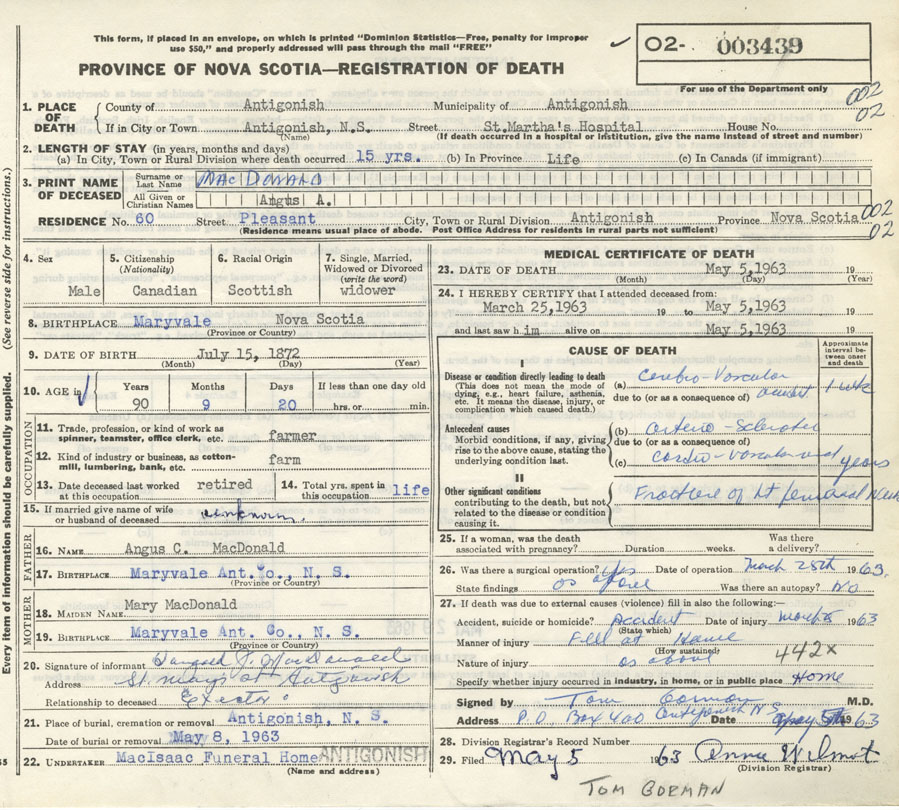 This form, if placed in an envelope, on which is printed "Dominion Statistics—Free, penalty for improper
use $50," and properly addressed will pass through the mail "FREE"
✓ O2- 003439
PROVINCE OF NOVA SCOTIA—REGISTRATION OF DEATH
For use of the Department only
002
02
1. PLACE OF DEATH
County of Antigonish Municipality of Antigonish
If in City or Town Antigonish, N.S. Street St.Martha's Hospital House No.
(Name) (If death occurred in a hospital or institution, give the name instead of street and number)
2. LENGTH OF STAY (in years, months and days)
(a) In City, Town or Rural Division where death occurred 15 yrs. (b) In Province Life (c) In Canada (if immigrant)
3. PRINT NAME OF DECEASED
Surname or Last Name MacDONALD
All Given or Christian Names Angus A.
RESIDENCE No. 60 Street Pleasant City, Town or Rural Division Antigonish Province Nova Scotia
002
02
(Residence means usual place of abode. Post Office Address for residents in rural parts not sufficient)
(See reverse side for instructions.)
Every item of information should be carefully supplied.
4. Sex 5. Citizenship (Nationality) 6. Racial Origin 7. Single, Married, Widowed or Divorced (write the word)
Male Canadian Scottish widower
8. BIRTHPLACE Maryvale Nova Scotia
(Province or Country)
9. DATE OF BIRTH July 15, 1872
(Month) (Day) (Year)
10. AGE in Years Months Days If less than one day old
90 9 20 hrs. or min.
OCCUPATION
11. Trade, profession, or kind of work as spinner, teamster, office clerk, etc. farmer
12. Kind of industry or business, as cotton-mill, lumbering, bank, etc. farm
13. Date deceased last worked at this occupation retired 14. Total yrs. spent in this occupation life
15. If married give name of wife or husband of deceased unknown
FATHER
16. NAME Angus C. MacDonald
17. BIRTHPLACE Maryvale Ant. Co., N. S.
(Province or Country)
MOTHER
18. MAIDEN NAME Mary MacDonald
19. BIRTHPLACE Maryvale Ant. Co., N. S.
(Province or Country)
20. Signature of informant MacDonald
Address St. Mary's St Antigonish
Relationship to deceased Exector
21. Place of burial, cremation or removal Antigonish, N. S.
Date of burial or removal May 8, 1963
22. UNDERTAKER MacIsaac Funeral Home ANTIGONISH
(Name and address)
MEDICAL CERTIFICATE OF DEATH
23. DATE OF DEATH May 5,1963 19
(Month) (Day) (Year)
24. I HEREBY CERTIFY that I attended deceased from:
March 25,1963 19 to May 5,1963 19
and last saw h im alive on May 5,1963 19
CAUSE OF DEATH
Approximate interval between onset and death
I
Disease or condition directly leading to death
(This does not mean the mode of dying, e.g., heart failure, asthenia, etc. It means the disease, injury, or complication which caused death.)
(a) Cerebro-Vascular
due to (or as a consequence of) accident 1 wk
Antecedent causes
Morbid conditions, if any, giving rise to the above cause, stating the underlying condition last.
(b) Arterio-Sclerotic
due to (or as a consequence of)
(c) Cardio-Vascular years
II
Other significant conditions
contributing to the death, but not related to the disease or condition causing it.
Fracture of Lt femoral Neck
25. If a woman, was the death associated with pregnancy? Duration weeks. Was there a delivery?
26. Was there a surgical operation? Yes Date of operation March 28th 1963.
State findings as above Was there an autopsy? No
27. If death was due to external causes (violence) fill in also the following:—
Accident, suicide or homicide? Accident Date of injury 1963
(State which)
Manner of injury Fell at Home
(How sustained)
Nature of injury as above 442x
Specify whether injury occurred in industry, in home, or in public place Home
Signed by Tom Gorman M.D.
Address P.O. Box 400 Antigonish NS Date May 5th 1963
28. Division Registrar's Record Number
29. Filed May 5 1963 Annie Wilmot
(Division Registrar)
TOM GORMAN